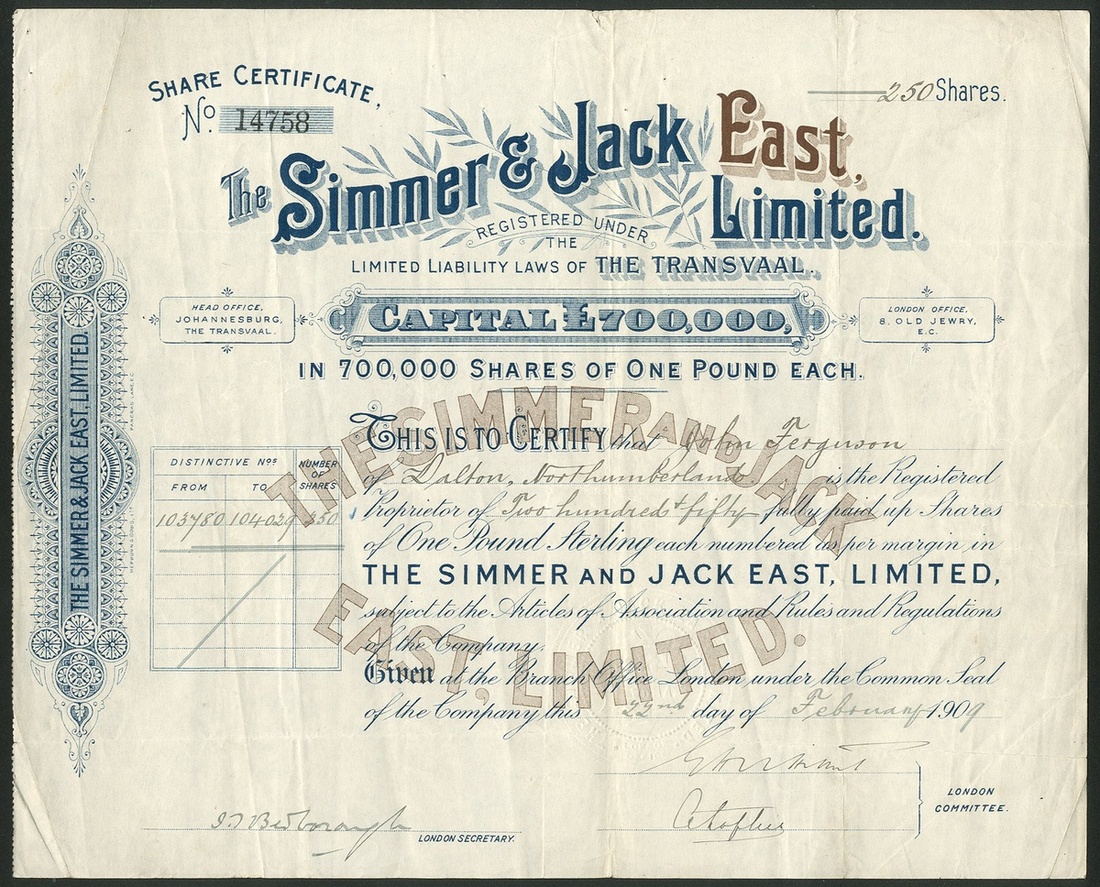 SHARE CERTIFICATE,
No. 14758
250 Shares.
The Simmer & Jack East, Limited.
REGISTERED UNDER
THE
LIMITED LIABILITY LAWS OF THE TRANSVAAL.
HEAD OFFICE,
JOHANNESBURG,
THE TRANSVAAL.
CAPITAL £700,000,
LONDON OFFICE,
8, OLD JEWRY,
E.C.
IN 700,000 SHARES OF ONE POUND EACH.
THE SIMMER AND JACK
EAST, LIMITED.
THE SIMMER & JACK EAST, LIMITED.
THIS IS TO CERTIFY that John Ferguson
of Dalton, Northumberland is the Registered
Proprietor of Two hundred + fifty fully paid up Shares
of One Pound Sterling each numbered as per margin, in
THE SIMMER AND JACK EAST, LIMITED,
subject to the Articles of Association and Rules and Regulations
of the Company.
Given at the Branch Office London, under the Common Seal
of the Company this 22nd day of February 1909
DISTINCTIVE Nos.
NUMBER OF SHARES
FROM TO
103780 104029 250
LONDON
COMMITTEE.
LONDON SECRETARY.